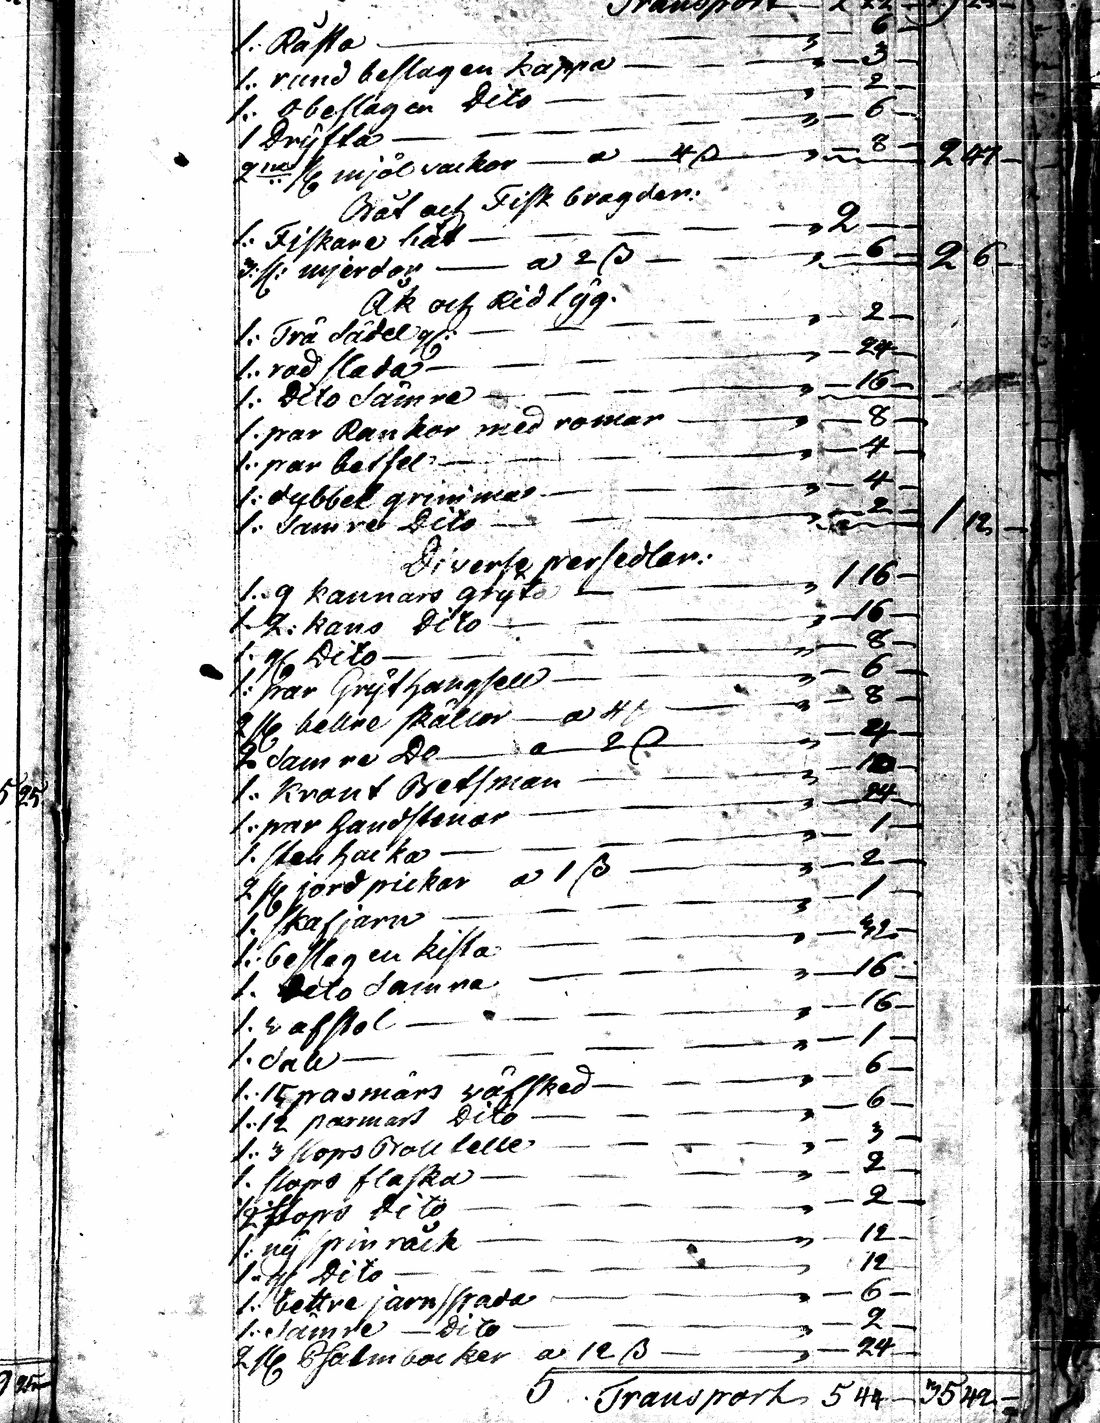 Transport
1: Råsta — 6
1: rund beslagen kappa — 3
1: Obeslagen Dito — 2
1 Dryfta — 6
2ne st mjölvackor — a 4 ß — 8 — 2 47
Båt och Fisk bragder:
1: Fiskare båt — 2
3: st: mjerdor — a 2 ß — 6 — 2 6
Åk och Ridtyg.
1: Trä Sadel gl: — 2
1: rod slada — 24
1: Dito Sämre — 16
1: par Rankor med romar — 8
1: par betsel — 4
1: dubbel grimma — 4
1: Samre Dito — 2 — 1 12
Diverse persedlar:
1: 9 kannars gryta — 1 16
1 2: kans Dito — 16
1: gl Dito — 8
1: par Grythangsell — 6
2 st bettre skällor — a 4 ß — 8
2 Samre Do — a 2 ß — 4
1: krant Betsman
1: par Handstenar — 24
1: sten hacka — 1
2 st jord pickar a 1 ß — 2
1: skafjarn — 1
1: beslagen kista — 32
1: Dito Samre — 16
1: vafstol — 16
1: Sale — 1
1: 15 pasmårs väfsked — 6
1: 12 pasmars Dito — 6
1: 3 stops Boutelle — 3
1. stops flaska — 2
1/2 stops Dito — 2
1: ny spinråck — 12
1: gl Dito — 12
1: bettre jarnspada — 6
1: Sämre — Dito — 2
2 st Psalmbocker a 12 ß — 24
5 . Transport 5 44 — 35 42
5 25